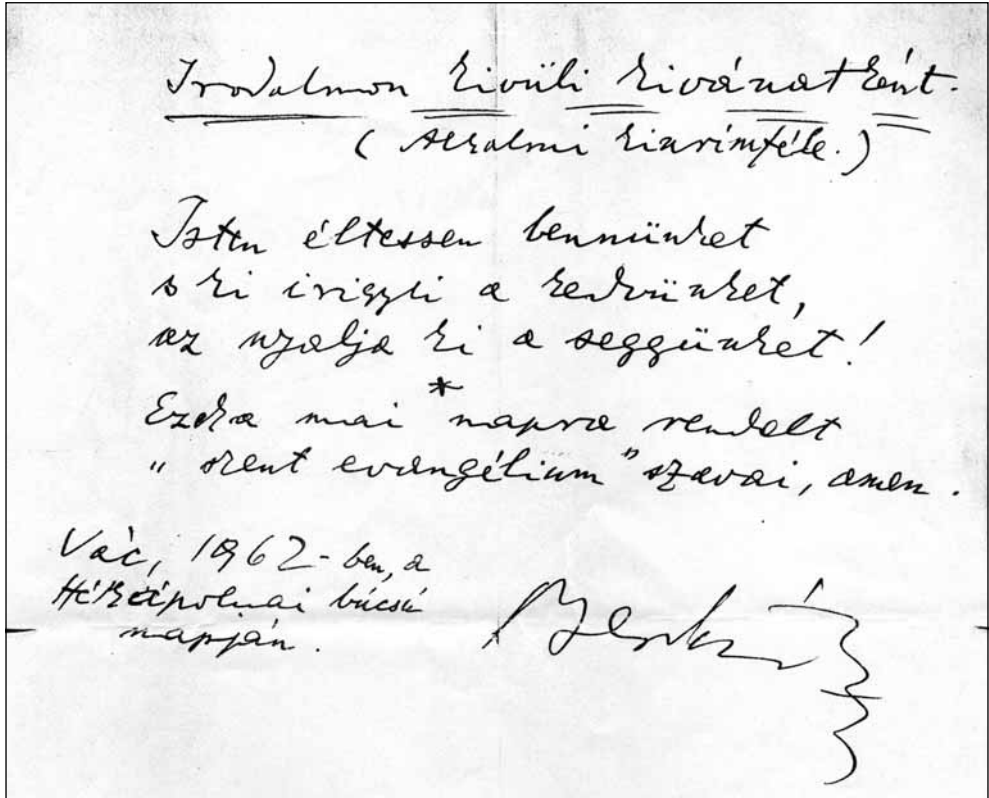 Irodalmon kivüli kivánatként.
(Alkalmi kinrimféle.)
Isten éltessen bennünket
s ki irigyli a kedvünket,
az nyalja ki a seggünket!
*
Ezek a mai napra rendelt
"szent evangélium" szavai, amen.
Vác, 1962-ben, a
Hétkápolnai búcsú
napján.